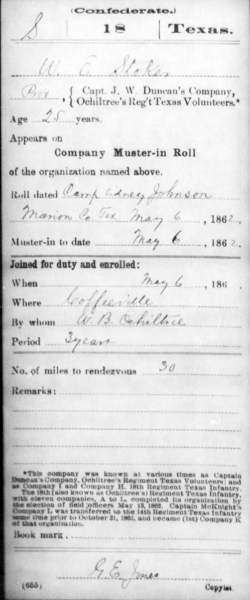 (Confederate.)
S 18 Texas.
W. E. Stokes
Pvt., { Capt. J. W. Duncan's Company, Ochiltree's Reg't Texas Volunteers.*
Age 25 years.
Appears on
Company Muster-in Roll
of the organization named above.
Roll dated Camp Johnson
Marion Co Tex May 6, 1862.
Muster-in to date May 6, 1862.
Joined for duty and enrolled:
When May 6, 186
Where Coffeeville
By whom W. B. Ochiltree
Period 3 years
No. of miles to rendezvous 30
Remarks:
*This company was known at various times as Captain
Duncan's Company, Ochiltree's Regiment Texas Volunteers; and
as Company I and Company H, 18th Regiment Texas Infantry.
The 18th (also known as Ochiltree's) Regiment Texas Infantry,
with eleven companies, A to L, completed its organization by
the election of field officers May 13, 1862. Captain McKnight's
Company I, was transferred to the 14th Regiment Texas Infantry
some time prior to October 31, 1862, and became (1st) Company K
of that organization.
Book mark:
G. E. Jones
(655) Copyist.